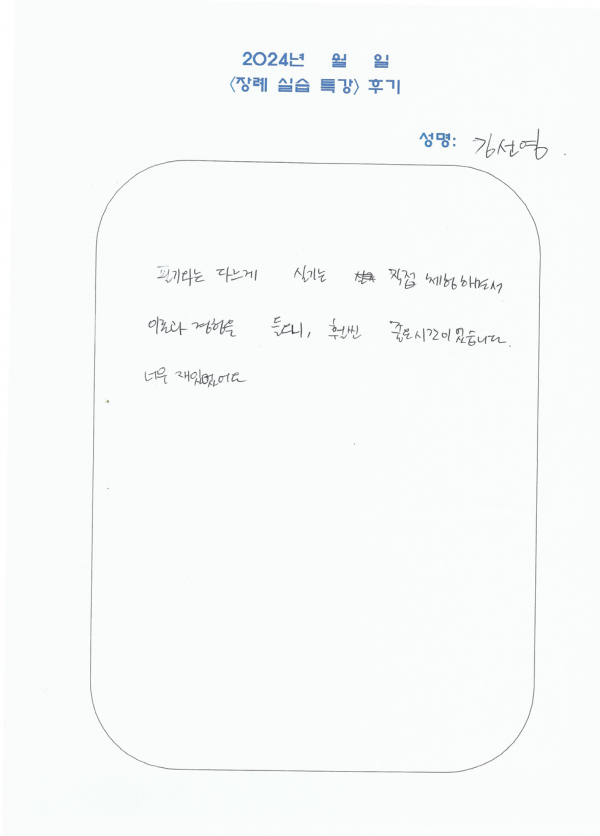 2024년 월 일
<장례 실습 특강> 후기
성명: 김선영
필기와는 다르게 실기는 직접 체험하면서
이론과 경험을 듣으니, 훨씬 좋은시간이었습니다.
너무 재밌었어요